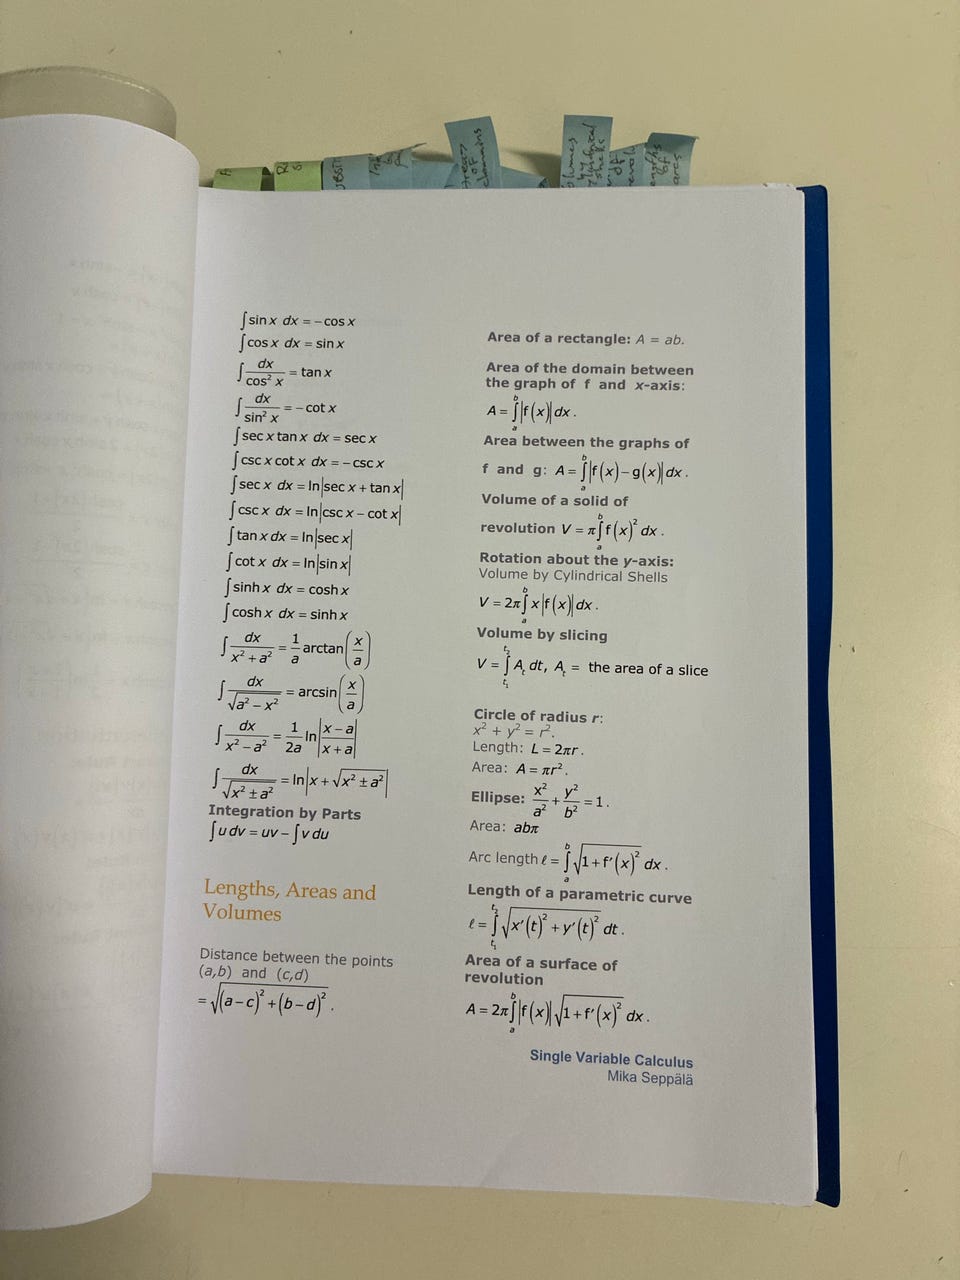 Areas
of
domains
Volumes
by
cylindrical
shells
of
Lengths
of
arcs
∫ sin x dx = − cos x
∫ cos x dx = sin x
∫ dx / cos² x = tan x
∫ dx / sin² x = − cot x
∫ sec x tan x dx = sec x
∫ csc x cot x dx = − csc x
∫ sec x dx = ln|sec x + tan x|
∫ csc x dx = ln|csc x − cot x|
∫ tan x dx = ln|sec x|
∫ cot x dx = ln|sin x|
∫ sinh x dx = cosh x
∫ cosh x dx = sinh x
∫ dx / (x² + a²) = 1/a arctan(x/a)
∫ dx / √(a² − x²) = arcsin(x/a)
∫ dx / (x² − a²) = 1/2a ln|(x − a)/(x + a)|
∫ dx / √(x² ± a²) = ln|x + √(x² ± a²)|
Integration by Parts
∫ u dv = uv − ∫ v du
Lengths, Areas and
Volumes
Distance between the points
(a,b) and (c,d)
= √((a − c)² + (b − d)²) .
Area of a rectangle: A = ab.
Area of the domain between
the graph of f and x-axis:
A = ∫ₐᵇ |f(x)| dx .
Area between the graphs of
f and g: A = ∫ₐᵇ |f(x) − g(x)| dx .
Volume of a solid of
revolution V = π ∫ₐᵇ f(x)² dx .
Rotation about the y-axis:
Volume by Cylindrical Shells
V = 2π ∫ₐᵇ x |f(x)| dx .
Volume by slicing
V = ∫_{t₁}^{t₂} Aₜ dt, Aₜ = the area of a slice
Circle of radius r:
x² + y² = r².
Length: L = 2πr .
Area: A = πr² .
Ellipse: x²/a² + y²/b² = 1 .
Area: abπ
Arc length ℓ = ∫ₐᵇ √(1 + f′(x)²) dx .
Length of a parametric curve
ℓ = ∫_{t₁}^{t₂} √(x′(t)² + y′(t)²) dt .
Area of a surface of
revolution
A = 2π ∫ₐᵇ |f(x)| √(1 + f′(x)²) dx .
Single Variable Calculus
Mika Seppälä